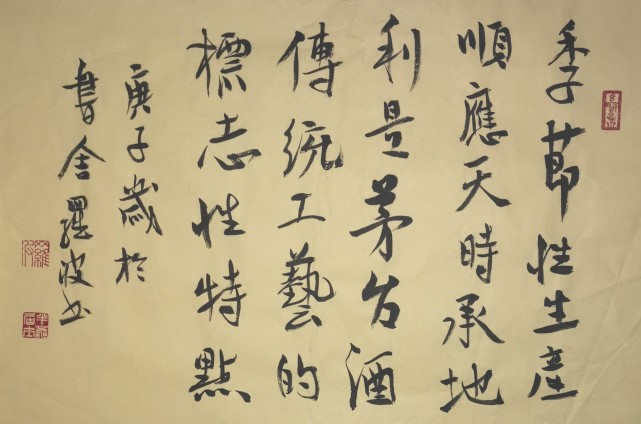 季節性生産
順應天時承地
利是茅台酒
傳統工藝的
標志性特點
庚子歲於
書舍羅波书